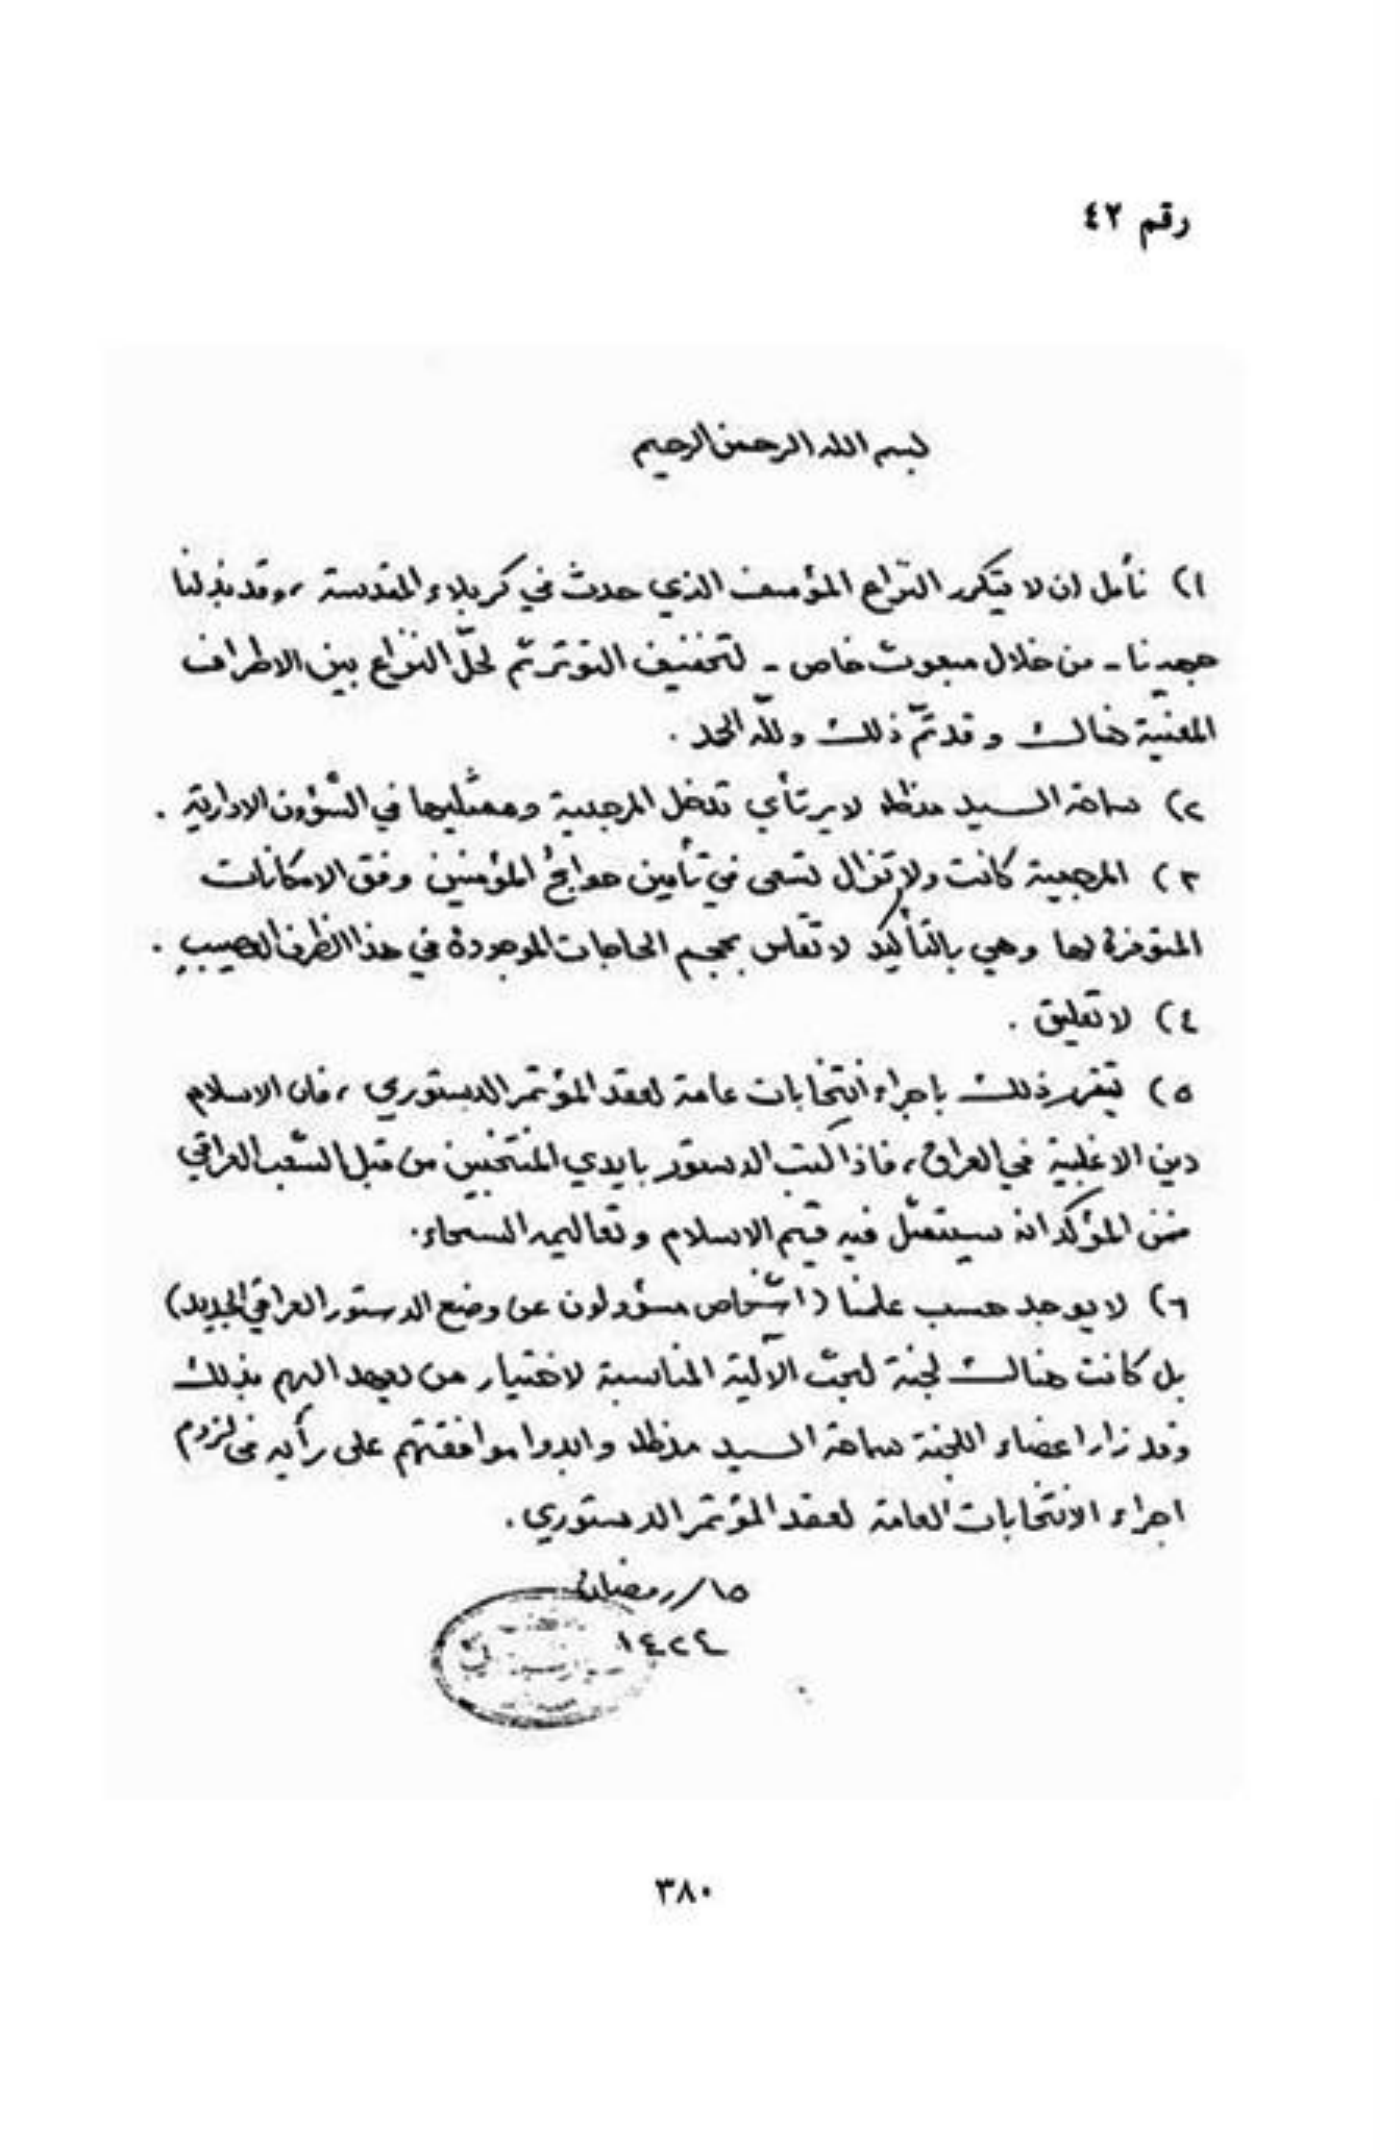 رقم ٤٢
بسم الله الرحمن الرحيم
١) نأمل ان لا يتكرر النزاع المؤسف الذي حدث في كربلاء المقدسة ، وقد بذلنا
جهدنا - من خلال مبعوث خاص - لتخفيف التوتر ثم لحلّ النزاع بين الاطراف
المعنية هناك و قد تمّ ذلك وللّه الحمد .
٢) سماحة السيد مدظله لا يرتأي تدخل المرجعية وممثليها في الشؤون الادارية .
٣) المرجعية كانت ولا تزال تسعى في تأمين حوائج المؤمنين وفق الامكانات
المتوفرة لها وهي بالتأكيد لا تقاس بحجم الحاجات الموجودة في هذا الظرف العصيب .
٤) لا تعليق .
٥) يتقرر ذلك باجراء انتخابات عامة لعقد المؤتمر الدستوري ، فان الاسلام
دين الاغلبية في العراق ، فاذا كتب الدستور بايدي المنتخبين من قبل الشعب العراقي
فمن المؤكد انه سيتمثّل فيه قيم الاسلام وتعاليمه السمحاء .
٦) لا يوجد حسب علمنا (اشخاص مسؤولون عن وضع الدستور العراقي الجديد)
بل كانت هنالك لجنة لبحث الآلية المناسبة لاختيار من يعهد اليهم بذلك
وقد زار اعضاء اللجنة سماحة السيد مدظله وابدوا موافقتهم على رأيه في لزوم
اجراء الانتخابات العامة لعقد المؤتمر الدستوري .
١٥/رمضان/
١٤٢٤
٣٨٠